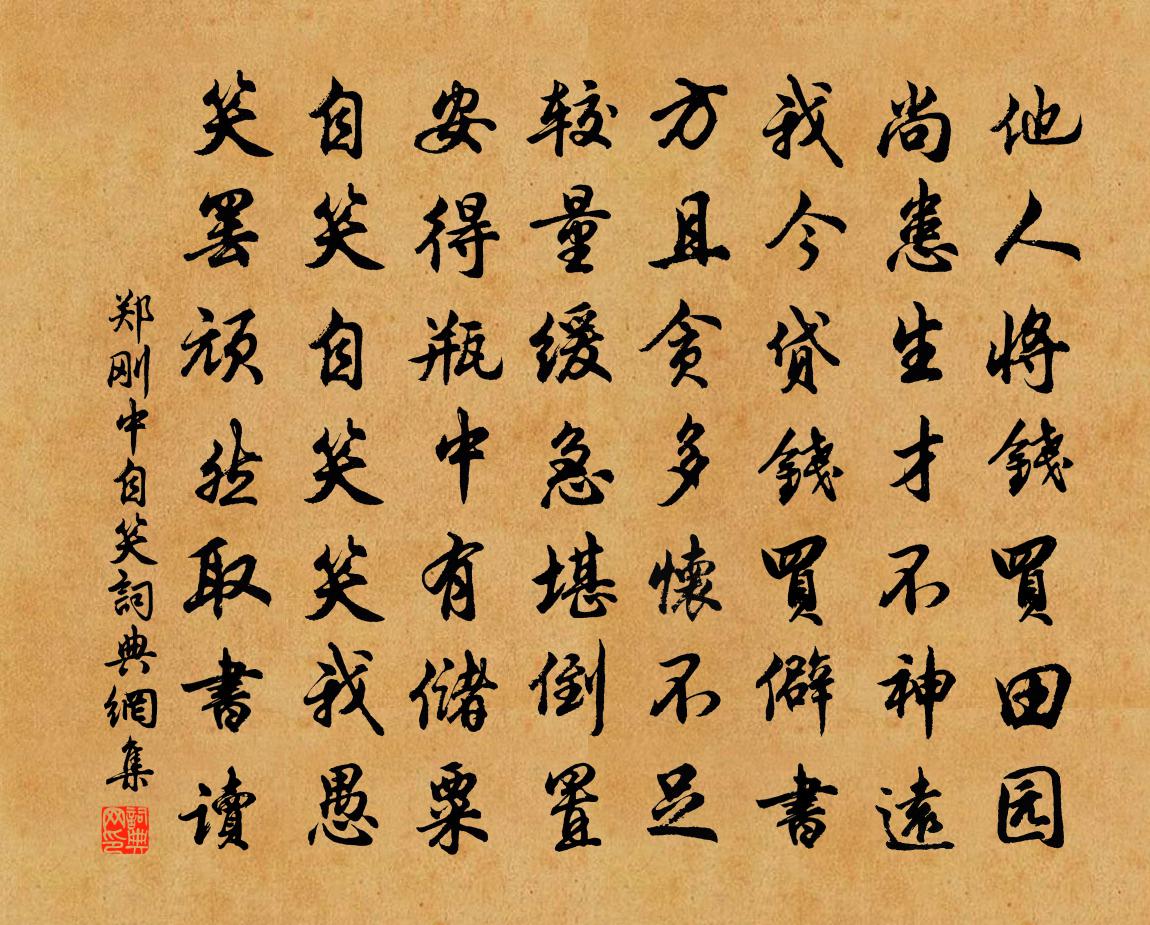 他人将錢買田园
尚患生才不神遠
我今貸錢買僻書
方且贪多懷不足
较量缓急堪倒置
安得瓶中有儲粟
自笑自笑笑我愚
笑罢顽然取書讀
郑刚中自笑詞典網集
詞典网印